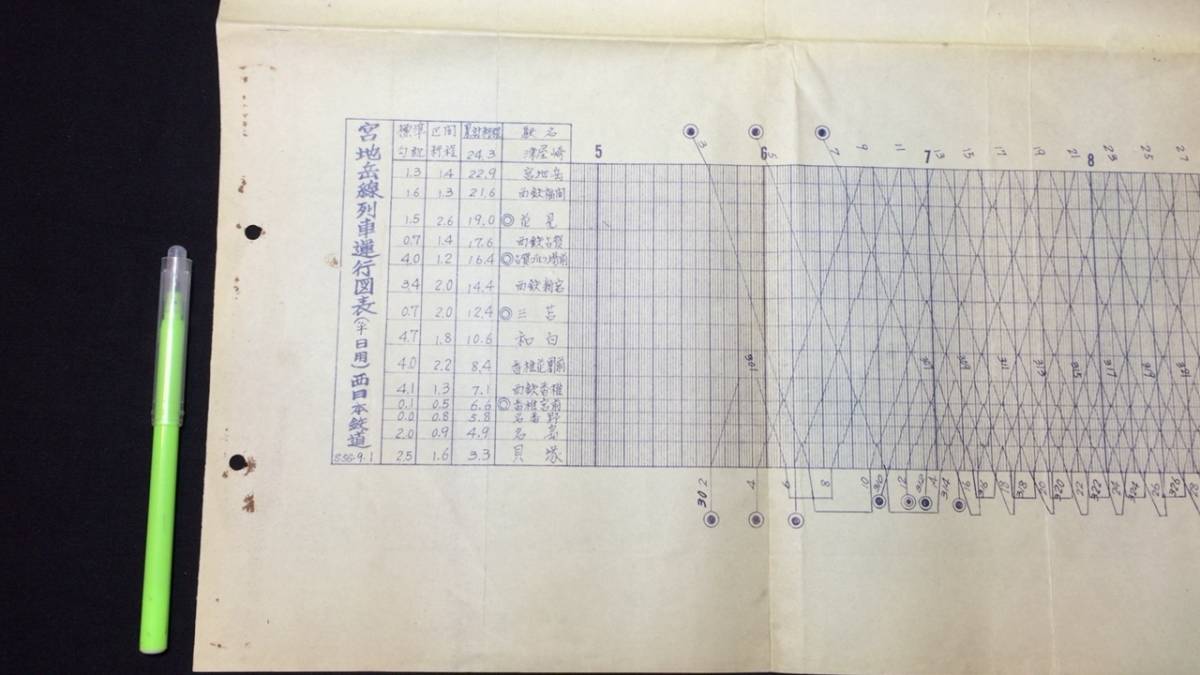 宮地岳線列車運行図表(平日用)西日本鉄道
S58.9.1
標準勾配 区間粁程 累計粁程 駅名
24.3 津屋崎
1.3 1.4 22.9 宮地岳
1.6 1.3 21.6 西鉄福間
1.5 2.6 19.0 ◎花見
0.7 1.4 17.6 西鉄古賀
4.0 1.2 16.4 ◎古賀ゴルフ場前
3.4 2.0 14.4 西鉄新宮
0.7 2.0 12.4 ◎三苫
4.7 1.8 10.6 和白
4.0 2.2 8.4 香椎花園前
4.1 1.3 7.1 西鉄香椎
0.1 0.5 6.6 ◎香椎宮前
0.0 0.8 5.8 名香野
2.0 0.9 4.9 名島
2.5 1.6 3.3 貝塚
5 6 7 8
3 5 7 9 11 13 15 17 19 21 23 25 27
301 307 309 311 313 315 317 319
302 4 6 8 10 12 14 314 16 318 18 20 320 22 322 24 324 26 326 28